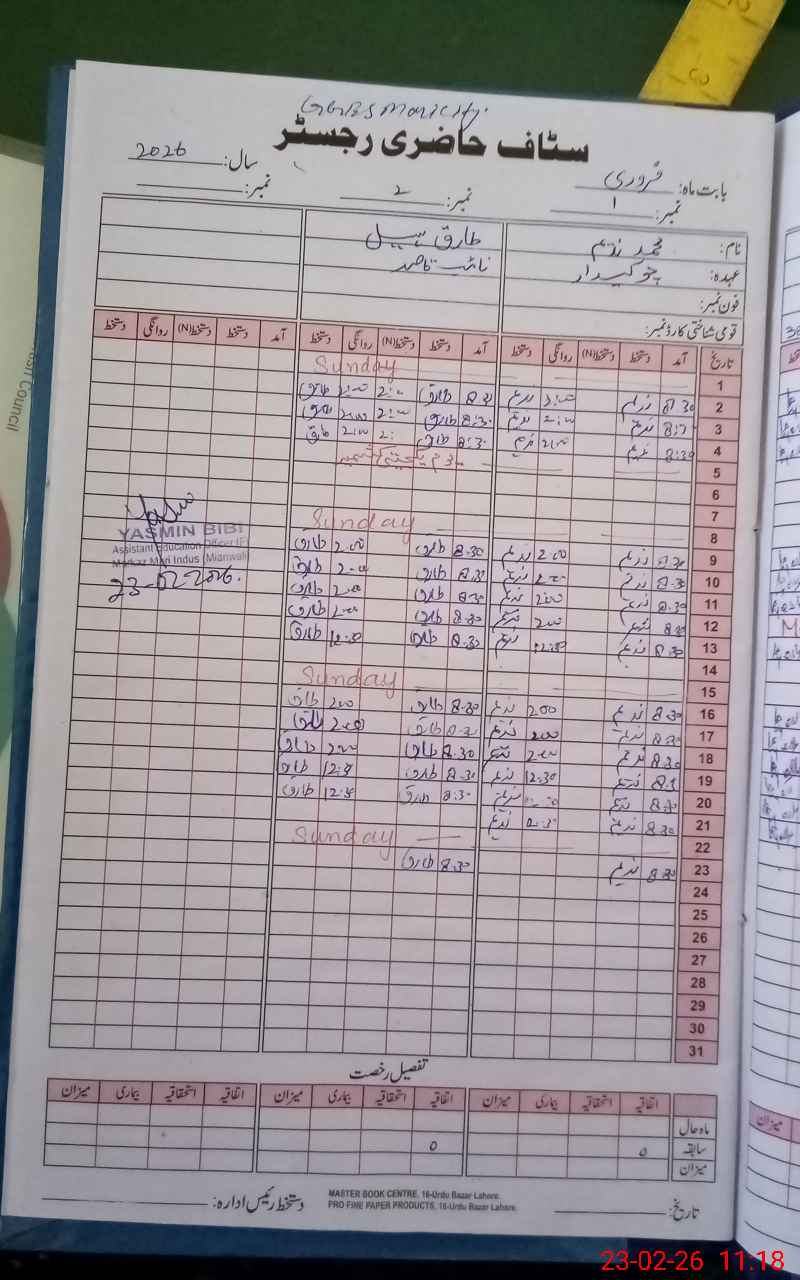 سٹاف حاضری رجسٹر
بابت ماہ: فروری سال: 2026
نمبر: 1 نمبر: 2 نمبر:
نام: محمد ندیم طارق
عہدہ: چوکیدار نائب قاصد
فون نمبر:
قومی شناختی کارڈ نمبر:
تاریخ آمد دستخط دستخط(N) روانگی دستخط آمد دستخط دستخط(N) روانگی دستخط آمد دستخط دستخط(N) روانگی دستخط
1 Sunday
2 8:30 ندیم 2:00 ندیم 8:30 طارق 2:00 طارق
3 ندیم 2:00 ندیم 8:30 طارق 2:00 طارق
4 8:30 ندیم 2:00 ندیم 8:30 طارق 2:00 طارق
5
6
7
8 Sunday
9 8.30 ندیم 2.00 ندیم 8.30 طارق 2.00 طارق
10 8.30 ندیم 2.00 ندیم 8.30 طارق 2.00 طارق
11 8.30 ندیم 2.00 ندیم 8.30 طارق 2.00 طارق
12 8.30 ندیم 2.00 ندیم 8.30 طارق 2.00 طارق
13 8.30 ندیم 12:30 ندیم 8.30 طارق 12:30 طارق
14
15 Sunday
16 8.30 ندیم 2.00 ندیم 8.30 طارق 2.00 طارق
17 8.30 ندیم 2.00 ندیم 8.30 طارق 2.00 طارق
18 8.30 ندیم 2.00 ندیم 8.30 طارق 2.00 طارق
19 ندیم 12:30 ندیم 8.30 طارق 12:30 طارق
20 8.30 ندیم ندیم 8.30 طارق 12:30 طارق
21 8.30 ندیم ندیم
22 Sunday
23 8.30 ندیم 8.30 طارق
24
25
26
27
28
29
30
31
YASMIN BIBI
Assistant Education Officer (F)
Markaz Mari Indus (Mianwali)
23-02-2026.
تفصیل رخصت
اتفاقیہ استحقاقیہ بیماری میزان اتفاقیہ استحقاقیہ بیماری میزان اتفاقیہ استحقاقیہ بیماری میزان
ماہ حال
سابقہ 0 0
میزان
تاریخ: دستخط رئیس ادارہ:
MASTER BOOK CENTRE, 16-Urdu Bazar Lahore.
PRO FINE PAPER PRODUCTS, 16-Urdu Bazar Lahore.
Council
23-02-26 11:18